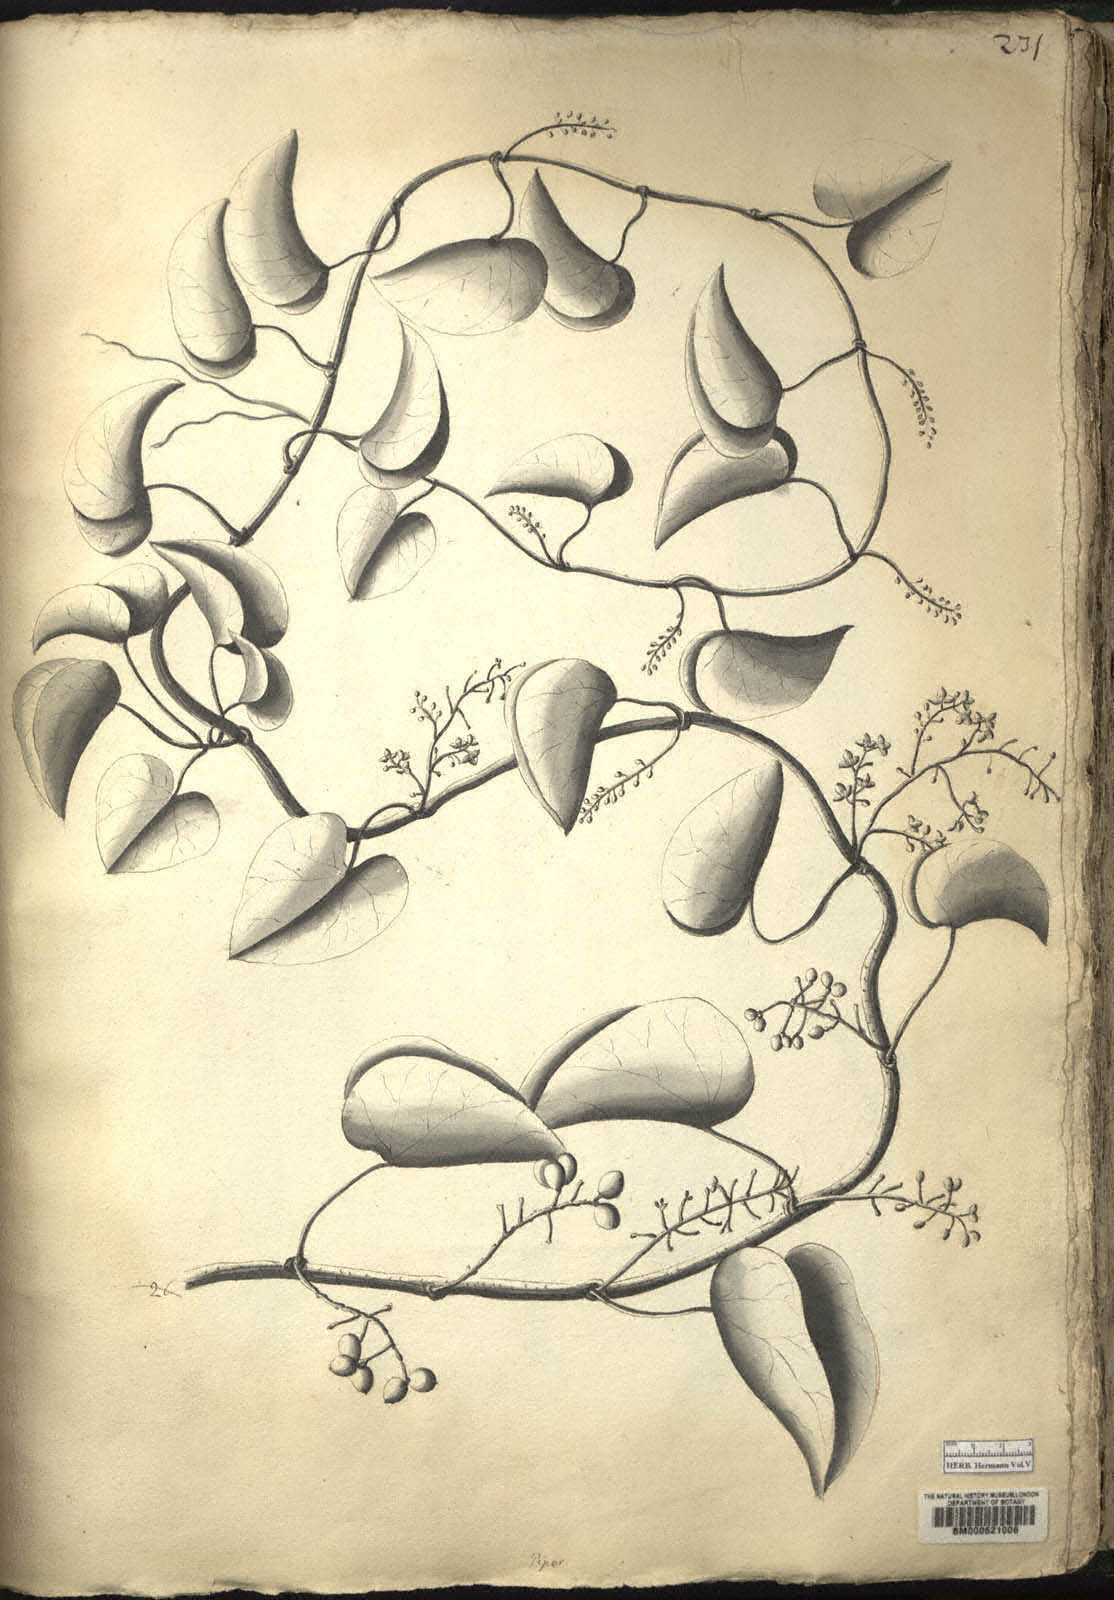 231
HERB. Hermann Vol. V
THE NATURAL HISTORY MUSEUM, LONDON
DEPARTMENT OF BOTANY
BM000621006
Piper